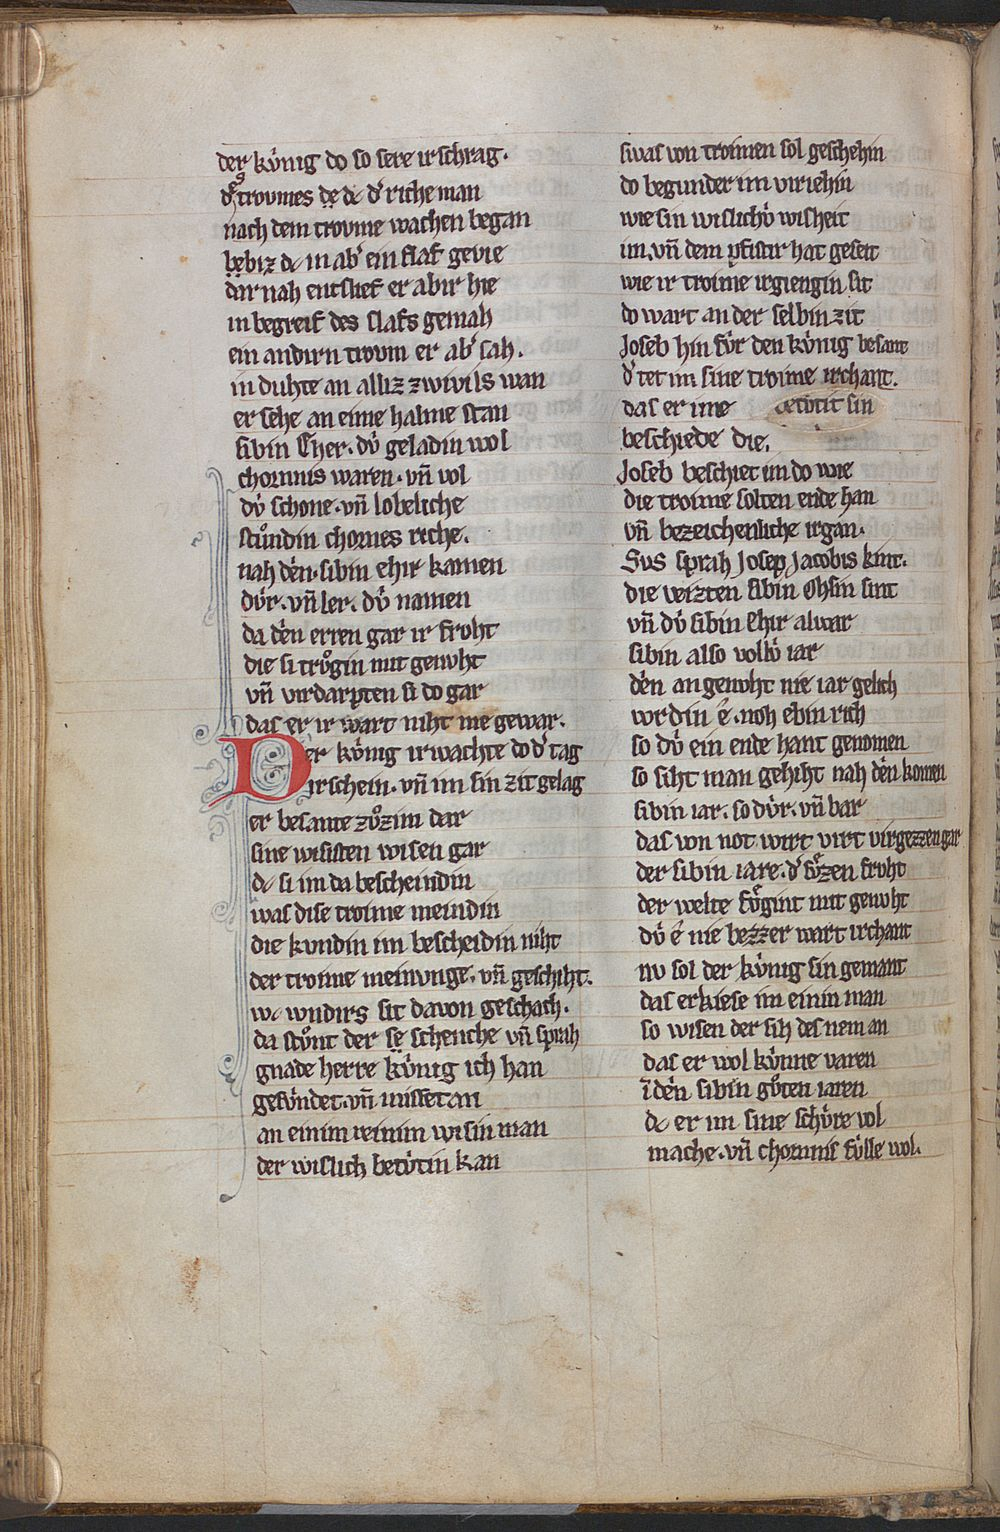 der kv́nig do so sere irschrag.
des trovmes dc dͤ riche man
nach dem trovme wachen began
biz dc in abͤ ein slaf gevie
dar nah entslief er abir hie
in begreif des slafs gemah
ein andirn trovm er abͤ sah.
in duhte an alliz zwivils wan
er sehe an eime halme stan
sibin Eher. dv́ geladin wol
chornnis waren. vn̄ vol
dv́ schone. vn̄ lobeliche
stůndin chornes riche.
nah dën. sibin ehir kamen
dv́r. vn̄ ler. dv́ namen
da dën erren gar ir froht
die si trůgin mit genvht
vn̄ virdarpten si do gar
das er ir wart niht me gewar.
Der kv́nig irwachte do dͤ tag
irschein. vn̄ im sin zit gelag
er besante zůzim dar
sine wisisten wisen gar
dc si im da bescheindin
was dise troime meindin
die kvndin im bescheidin niht
der troime meinvnge. vn̄ geschiht.
wc wndirs sit davon geschach.
da stůnt der schenche vn̄ sprah
gnade herre kv́nig ich han
gesv́ndet. vn̄ missetan
an einim reinim wisin man
der wislich betv́tin kan
swas von troimen sol geschehin
do begunder im viriehin
wie sin wislichv́ wisheit
im. vn̄ dem pfistir hat geseit
wie ir troime irgiengin sit
do wart an der selbin zit
Joseb hin fv́r den kv́nig besant
dͤ tet im sine troime irchant.
das er ime betv́tit sin
beschiede die.
Joseb beschiet im do wie
die troime solten ende han
vn̄ bezeichenliche irgan.
Svs sprah Josep Jacobis kint.
die veizten sibin Ohsin sint
vn̄ dv́ sibin Ehir alwar
sibin also vollv́ iar
dën an genvht nie iar gelich
wrdin ê. noh ebin rich
so dv́ ein ende hant genomen
so siht man gehiht nah dën komen
sibin iar. so dv́r. vn̄ bar
das von not wirt virgezzen gar
der sibin iare. dͤ sůzen froht
der welte fv́gint mit genvht
dv́ ê nie bezzer wart irchant
nv sol der kv́nig sin gemant
das er kiese im einin man
so wisen der sih des nem an
das er wol kv́nne varen
ī dën sibin gůten iaren
dc er im sine schv́re vol
mache. vn̄ chornnis fv́lle wol.